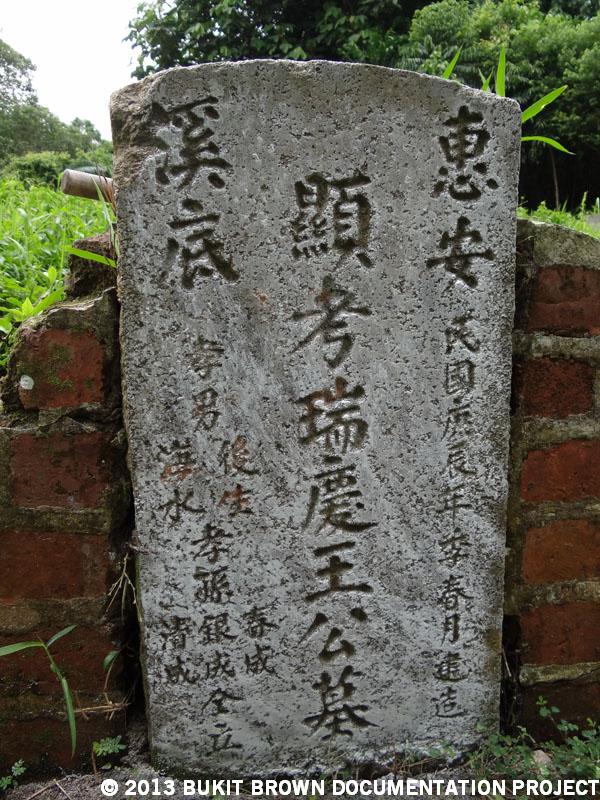 惠安
民國庚辰年季春月建造
顯考瑞慶王公墓
溪底
孝男
後生
海水
孝孫
春成
銀成
清成
仝立
© 2013 BUKIT BROWN DOCUMENTATION PROJECT